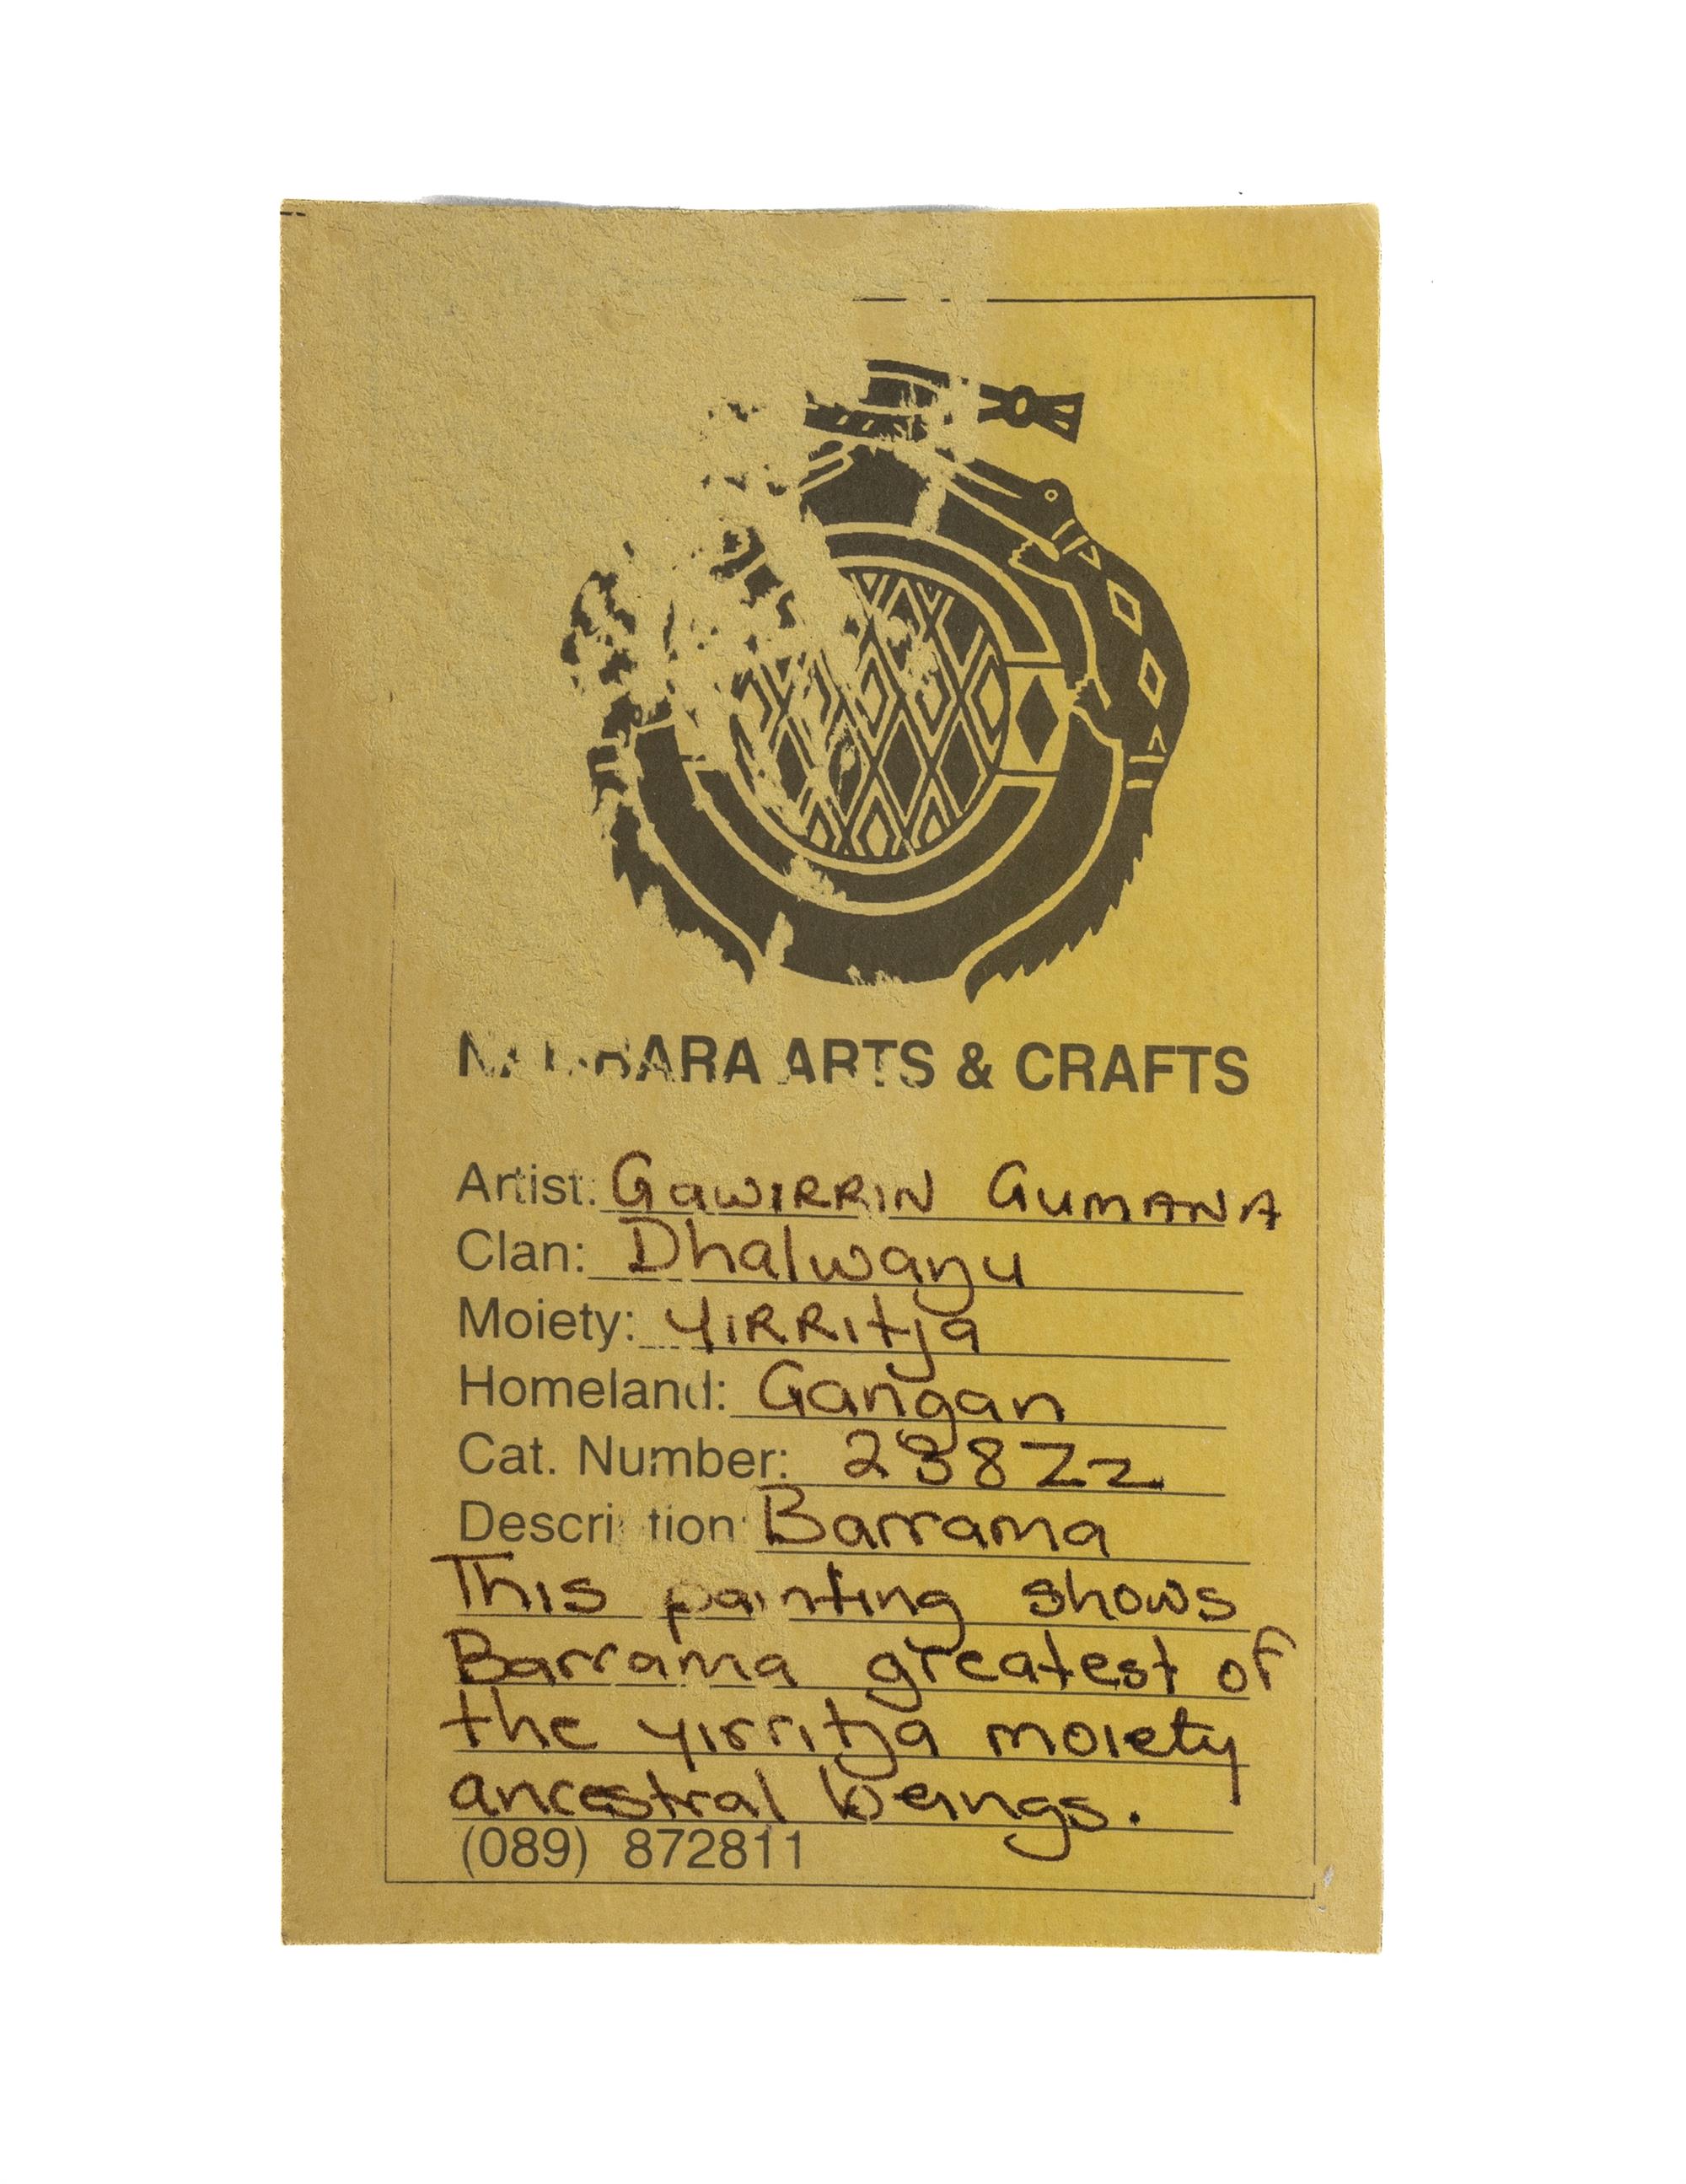 NAMBARA ARTS & CRAFTS
Artist: GAWIRRIN GUMANA
Clan: Dhalwaŋu
Moiety: YIRRITJA
Homeland: Gangan
Cat. Number: 238Zz
Description: Barrama
This painting shows
Barrama greatest of
the yirritja moiety
ancestral beings.
(089) 872811